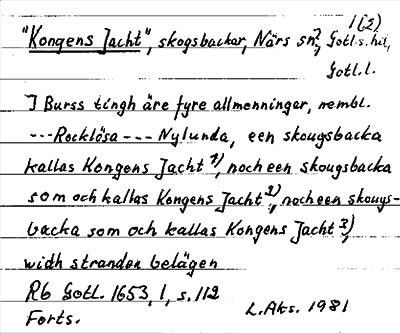 1(2)
"Kongens Jacht", skogsbackar, Närs sn?, Gotl.s.hd,
Gotl.l.
I Burss tingh äre fyre allmenningar, nembl.
---Rocklösa --- Nylunda, een skougsbacka
kallas Kongens Jacht 1), noch een skougsbacka
som och kallas Kongens Jacht 2), noch een skougs-
backa som och kallas Kongens Jacht 3),
widh stranden belägen
Rb Gotl. 1653, 1, s. 112
Forts. L.Aks. 1981